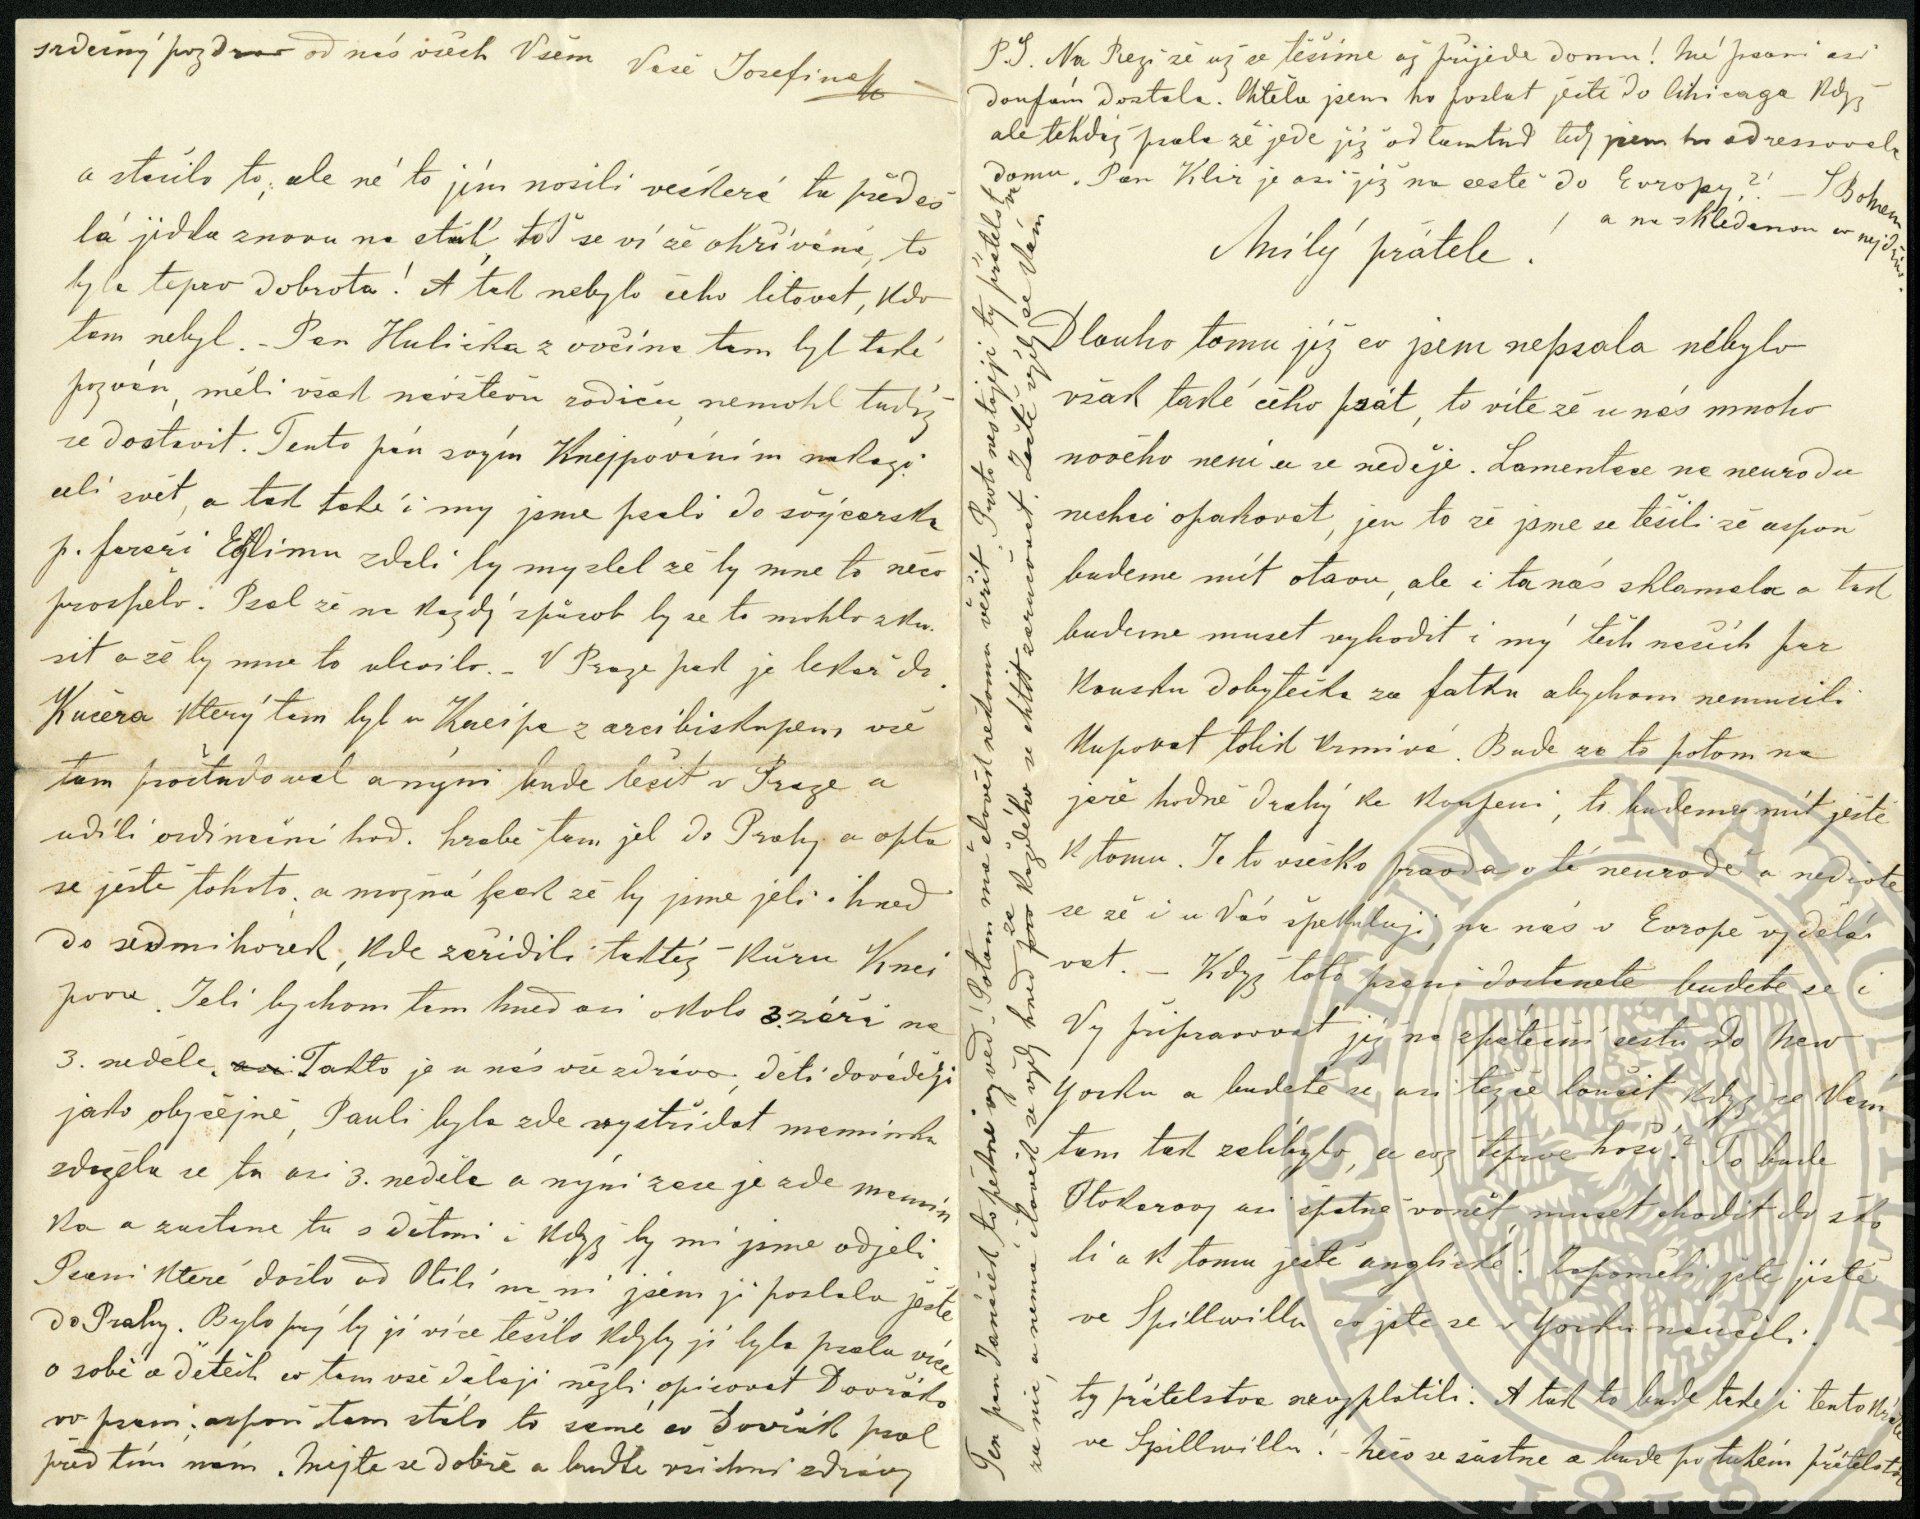 P.S. Na Rezi se už se těšíme až přijede domu! Mé psaní asi
doufám dostala. Chtěla jsem ho poslat ještě do Chicaga když
ale tehdáž psala že jede již odtamtud tedy jsem ho adressovala
domu. Pan Klir je asi již na cestě do Evropy?! – S Bohem
a na shledanou co nejdřív.
Milý přátele!
Dlouho tomu již co jsem nepsala nebylo
však také čeho psát, to víte že u nás mnoho
nového není a se neděje. Lamentace na neurodu
nechci opakovat, jen to že jsme se těšili že aspoň
budeme mít otavu, ale i ta nás sklamala a tak
budeme muset vyhodit i my těch našich par
kousku dobytečka za fatku abychom nemusili
kupovat tolik krmivá. Bude za to potom na
jaře hodně drahý ke koupeni, to budeme mít ještě
k tomu. Je to všecko pravda o té neurodě a nedivte
se že i u Vás špekulují, na nás v Evropě vydělá-
vat. – Když toto psaní dostanete budete se i
Vy připravovat již na zpáteční cestu do New
Yorku a budete se asi těžce loučit když se Vám
tam tak zalíbylo, a což teprve hoši? To bude
Otokarovy asi špatně vonět, muset chodit do ško
li a k tomu ještě anglické! Zapoměli jste jistě
ve Spillwillu co jste se v Yorku naučili.
ty přátelstva nevyplatili. A tak to bude také i tentokráte
ve Spillwillu! – Něco se sústne a bude po tuhém přátelstvu
Ten pan Janáček to pěkně vyved! Potom má člověk někomu věřit. Proto nestojeji ty přátelstva
za nic, a nemá člověk se vždy hned pro každého se chtít zaručovat. Ještě vždy se Vám
za
a stačilo to; ale né to jím nosili veškeré ta předeš
lá jídla znovu na stůl, toť se ví že okřívána, to
byla teprv dobrota! A tak nebylo čeho litovat, kdo
tam nebyl. – Pan Hulička z vočína tam byl také
pozván, měli však návštěvu rodiču, nemohl tudíž
se dostavit. Tento pán svým Knejpováním nakazí
celí svět, a tak také i my jsme psali do švýcarska
p. faráři zdali by myslel že by mne to něco
prospělo. Psal že na každý spůsob by se to mohlo zku-
sit a že by mne to ulevilo. – V Praze pak je lekař dr.
Kučera který tam byl u Kneipa z arcibiskupem vše
tam proštudoval a nýni bude léčit v Praze a
udílí ordinační hod. hrabě tam jel do Prahy a optá
se ještě tohoto, a možná pak že by jsme jeli ihned
do sedmihorek, kde zařídili taktéž kůru Knei
povu. Jeli bychom tam hned asi okolo 3. září na
3. neděle. Takto je u nás vše zdrávo, děti dovádějí
jako obyčejně, Pauli byla zde vystřídat maminku
zdržela se tu asi 3. neděle a nýni zase je zde mamin
ka a zustane tu s dětmi i když by mi jsme odjeli
Psani které došlo od Otilí na ni jsem jí poslala ještě
do Prahy. Bylo prý by jí více těšilo kdyby jí byla psala více
o sobě a dětech co tam vše dělají nežli opisovat Dvořáko
vo psaní, aspoň tam stálo to samé co Dvořák psal
před tím nám. Mějte se dobře a buďte všichni zdrávy
srdečný pozdrav od nás všech Všem Vaše Josefina K